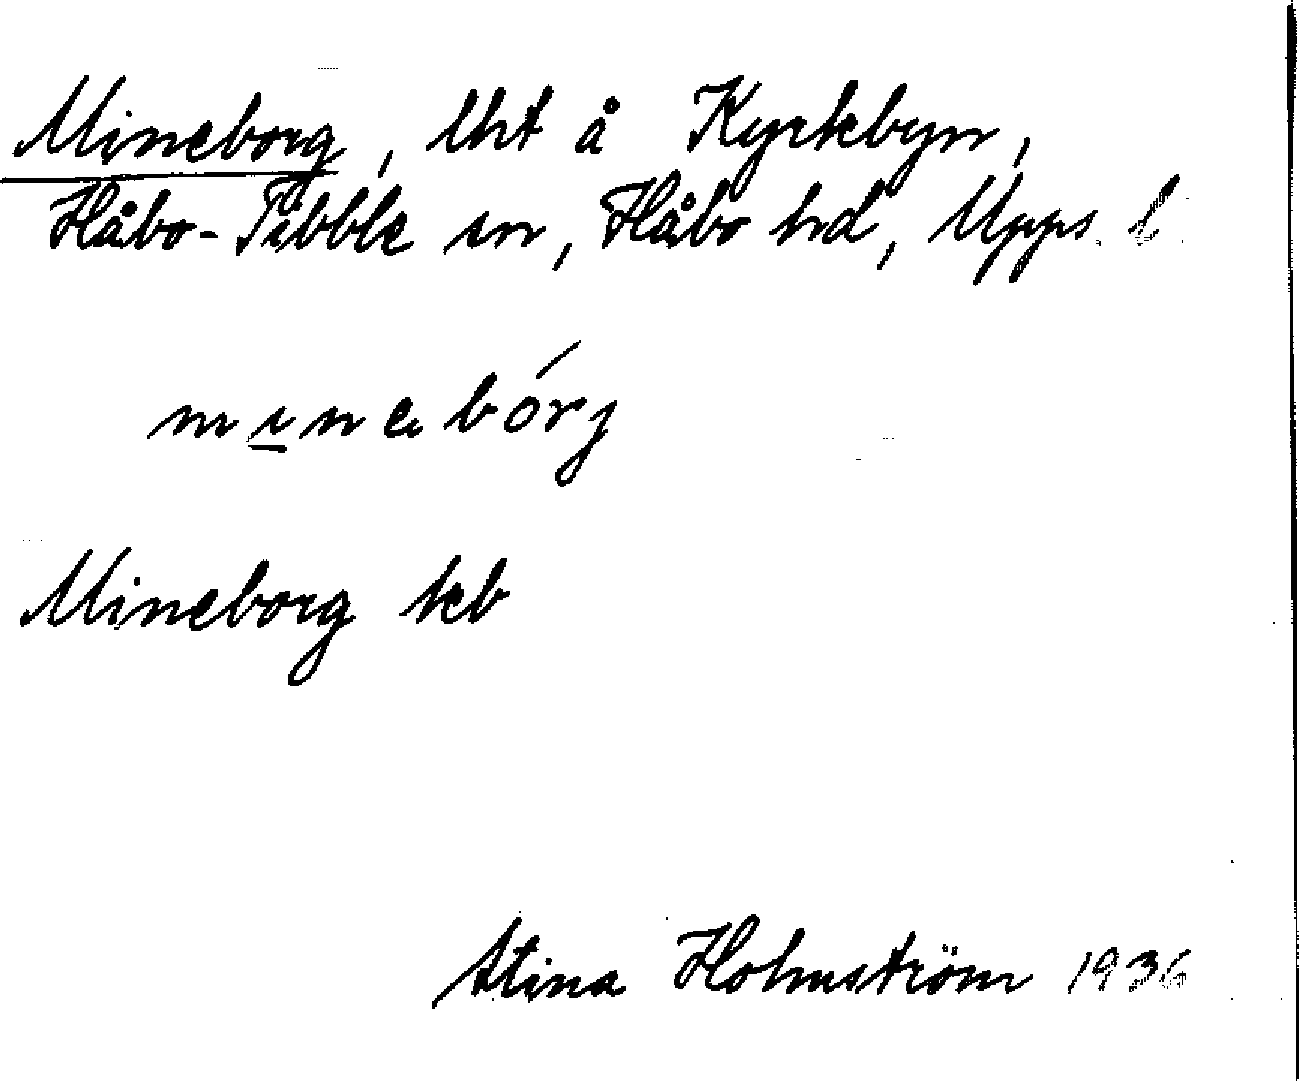 Mineborg, lht å Kyrkbyn,
Håbo-Tibble sn, Håbo hd, Upps. l.
minebórj
Mineborg kb
Stina Holmström 1936